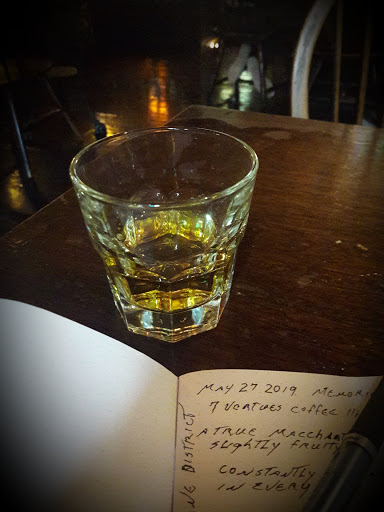 MAY 27 2019 MEMORI
7 VERTUES COFFEE
A TRUE MACCHIAT
slightly fruity
CONSTANTLY
IN EVERY
NE DISTRICT